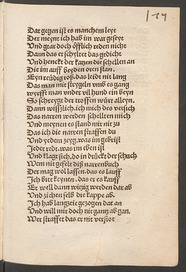 Dar gegen ist es manchem leyt
Der meynt ich hab im war geseyt
Und gtar doch öfflich reden nicht
Dann das er scheltet das gedicht
Und henckt der katzen die schellen an
Die im uff beyden oren stan
Eyn rüdig roß das lidt nit lang
Das man mit strygeln umb es gang
Wyrfft man under vil hund eyn beyn
So schreygt der troffen würt alleyn
Dann wißlich ich mich des versich
Das narren werden schelten mich
Und meynen es stand mir nit zu
Das ich die narren straffen du
Und yedem zeyg was im gebrist
Jeder redt was im eben ist
Und klagt sich do in druckt der schuch
Wem nit gefelt diß narrenbuch
Der mag wol lassen das es louff
Ich bitt keynen das er es kouff
Er well dann witzig werden dar ab
Und ziehen selbs die kappe ab
Ich hab langzyt gezogen dar an
Und will mir doch nit gantz ab gan
Wer straffet das er nit